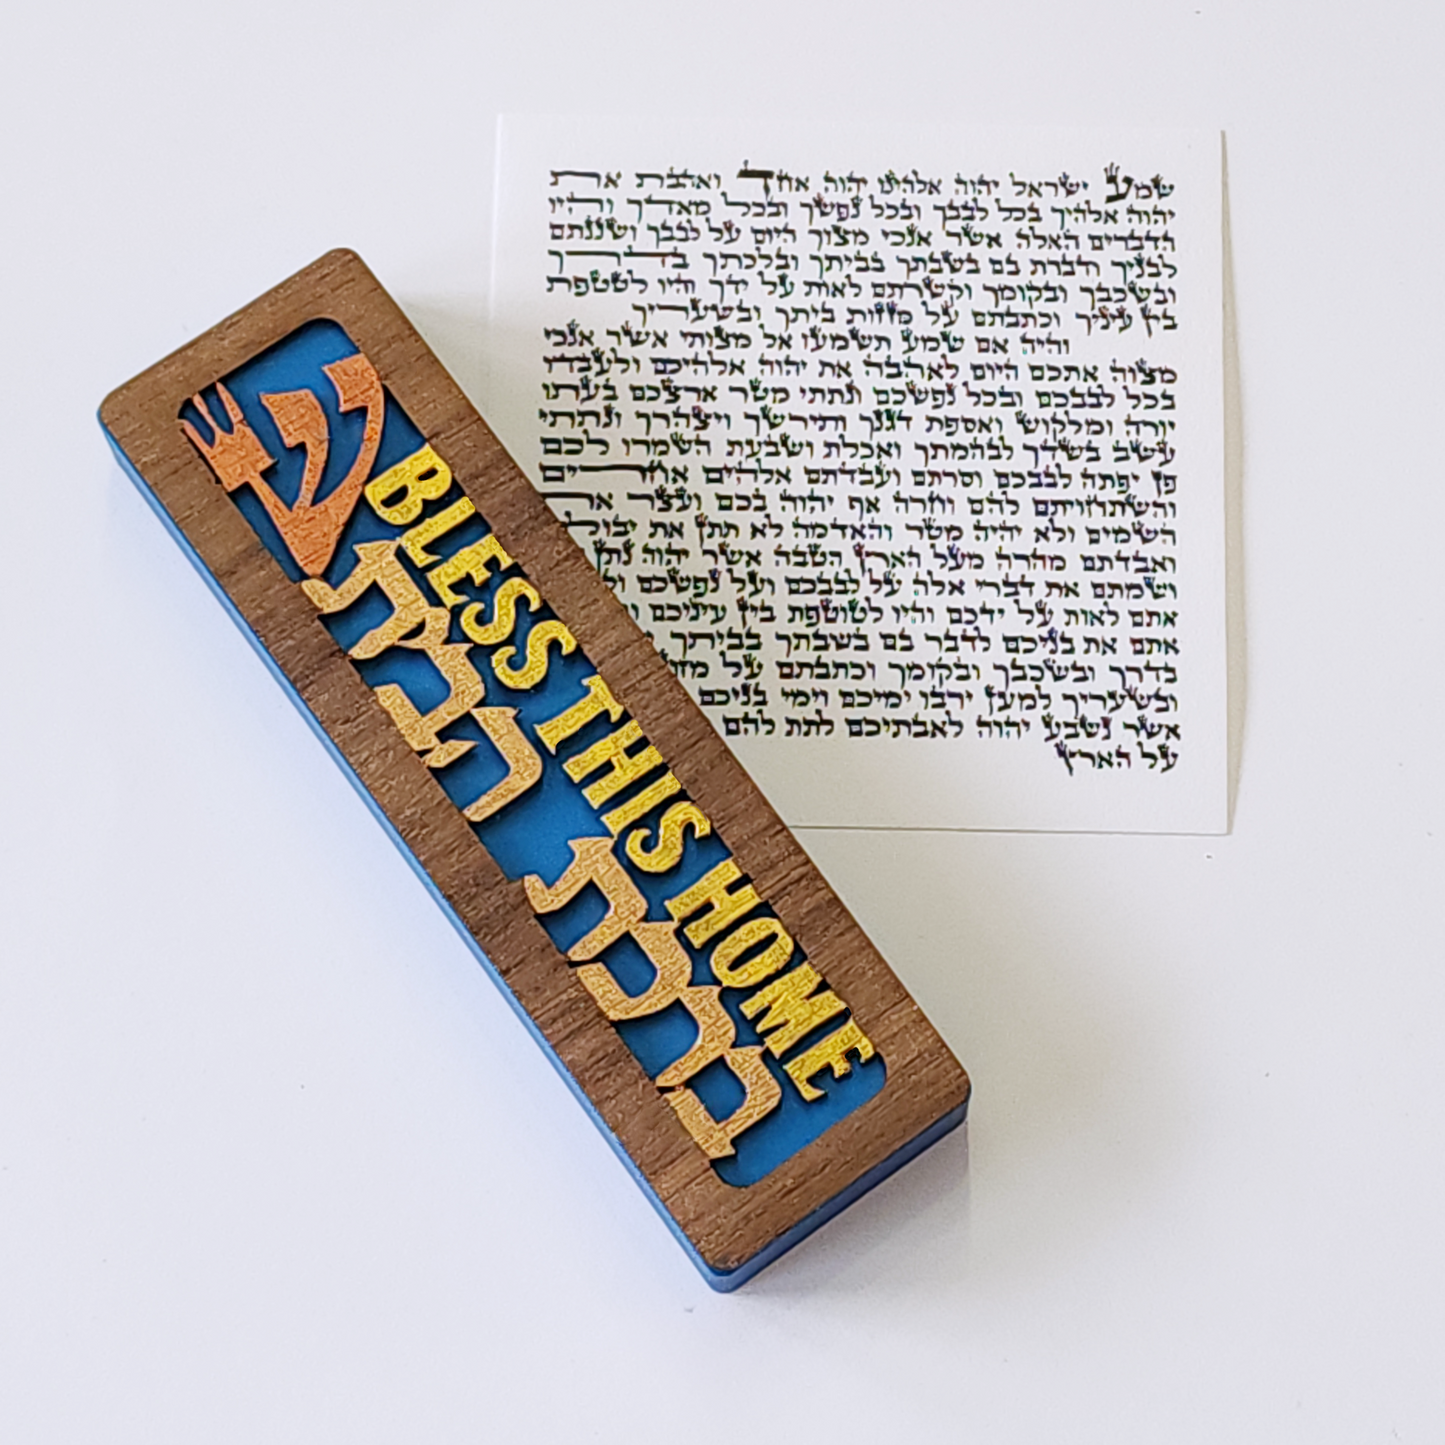 ש
BLESS THIS HOME
ברכת הבית
שמע ישראל יהוה אלהינו יהוה אחד ואהבת את
יהוה אלהיך בכל לבבך ובכל נפשך ובכל מאדך והיו
הדברים האלה אשר אנכי מצוך היום על לבבך ושננתם
לבניך ודברת בם בשבתך בביתך ובלכתך בדרך
ובשכבך ובקומך וקשרתם לאות על ידך והיו לטטפת
בין עיניך וכתבתם על מזזות ביתך ובשעריך
והיה אם שמע תשמעו אל מצותי אשר אנכי
מצוה אתכם היום לאהבה את יהוה אלהיכם ולעבדו
בכל לבבכם ובכל נפשכם ונתתי מטר ארצכם בעתו
יורה ומלקוש ואספת דגנך ותירשך ויצהרך ונתתי
עשב בשדך לבהמתך ואכלת ושבעת השמרו לכם
פן יפתה לבבכם וסרתם ועבדתם אלהים אחרים
והשתחויתם להם וחרה אף יהוה בכם ועצר את
השמים ולא יהיה מטר והאדמה לא תתן את יבולה
ואבדתם מהרה מעל הארץ הטבה אשר יהוה נתן
ושמתם את דברי אלה על לבבכם ועל נפשכם
אתם לאות על ידכם והיו לטוטפת בין עיניכם
אתם את בניכם לדבר בם בשבתך בביתך
בדרך ובשכבך ובקומך וכתבתם על
ובשעריך למען ירבו ימיכם וימי בניכם
אשר נשבע יהוה לאבתיכם לתת להם
על הארץ